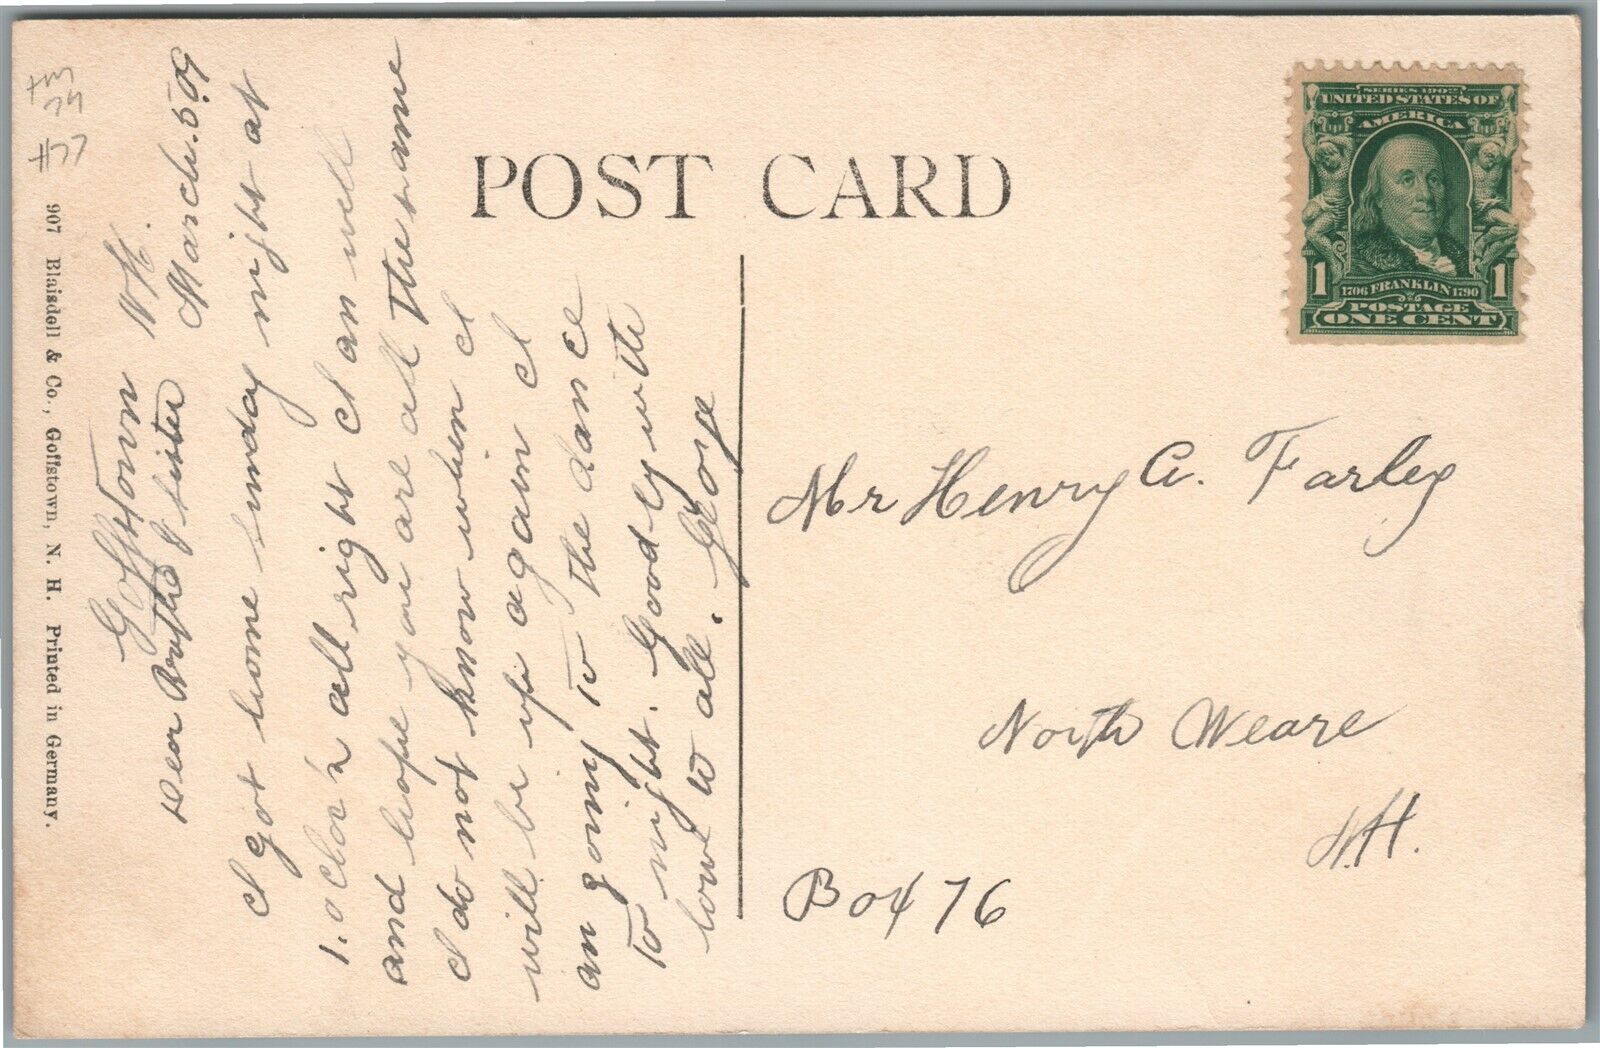 POST CARD
SERIES 1902
UNITED STATES OF
AMERICA
1 1
1706 FRANKLIN 1790
POSTAGE
ONE CENT
#77
907 Blaisdell & Co., Goffstown, N. H. Printed in Germany.
Goffstown NH.
March. 5. 09
Dear Brother & sister
I got home sunday night at
1. oclock all right I am well
and hope you are all the same
I do not know when I
will be up again I
am going to the dance
to night. Goodby with
love to all. George
Mr Henry A. Farley
North Weare
N.H.
Box 76